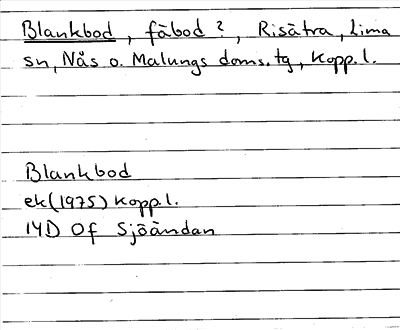 Blankbod, fäbod?, Risätra, Lima
sn, Nås o. Malungs doms.tg, Kopp.l.
Blankbod
ek(1975) Kopp.l.
14D 0f Sjöändan